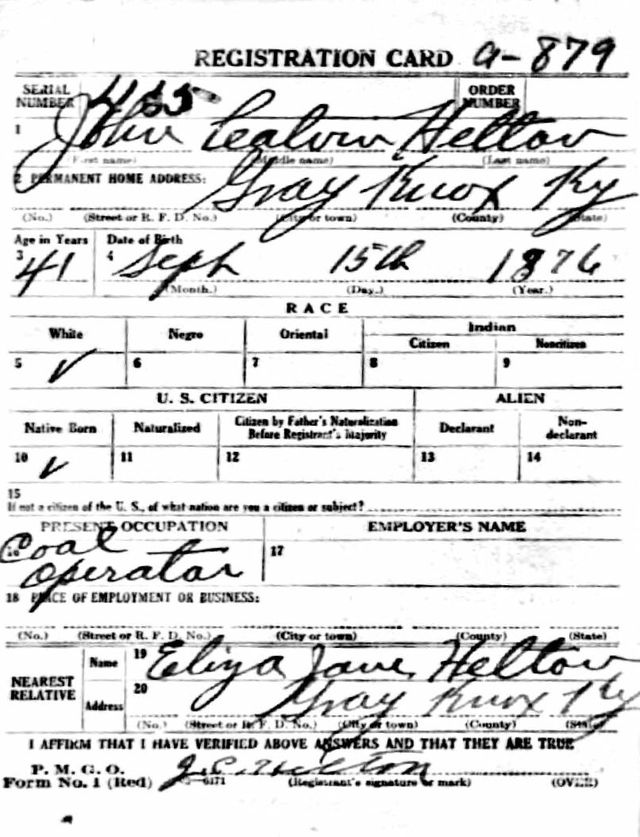 REGISTRATION CARD a-879
SERIAL NUMBER 455 ORDER NUMBER
1 John Calvin Helton
(First name) (Middle name) (Last name)
2 PERMANENT HOME ADDRESS: Gray Knox Ky
(No.) (Street or R. F. D. No.) (City or town) (County) (State)
Age in Years Date of Birth
3 41 4 Sept 15th 1876
(Month.) (Day.) (Year.)
RACE
White Negro Oriental Indian
Citizen Noncitizen
5 ✓ 6 7 8 9
U. S. CITIZEN ALIEN
Native Born Naturalized Citizen by Father's Naturalization Before Registrant's Majority Declarant Non-declarant
10 ✓ 11 12 13 14
15
If not a citizen of the U. S., of what nation are you a citizen or subject?
PRESENT OCCUPATION EMPLOYER'S NAME
16 Coal 17
Operator
18 PLACE OF EMPLOYMENT OR BUSINESS:
(No.) (Street or R. F. D. No.) (City or town) (County) (State)
NEAREST RELATIVE Name 19 Eliza Jane Helton
Address 20 Gray Knox Ky
(No.) (Street or R. F. D. No.) (City or town) (County) (State)
I AFFIRM THAT I HAVE VERIFIED ABOVE ANSWERS AND THAT THEY ARE TRUE
P. M. G. O.
Form No. 1 (Red) J. C. Helton
(Registrant's signature or mark) (OVER)